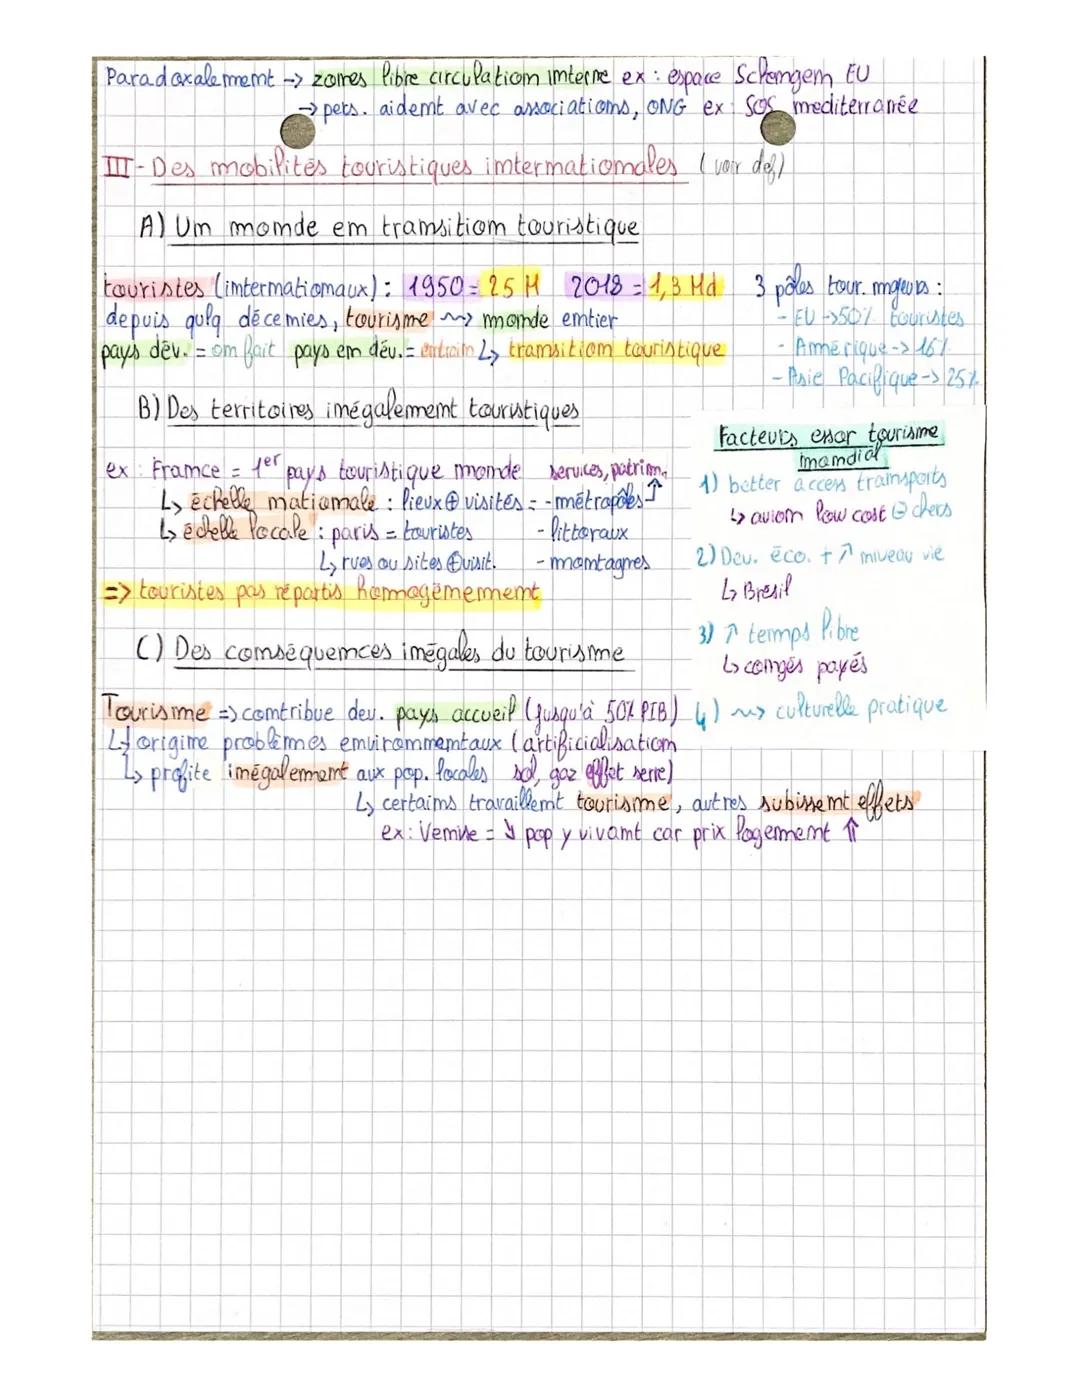 Paradoxalement -> zones libre circulation interne ex : espace Schengen EU
-> pers. aident avec associations, ONG ex : SOS mediterranée
III - Des mobilités touristiques internationales (voir def)
A) Un monde en transition touristique
touristes (internationaux) : 1950 = 25 M 2018 = 1,3 Md
depuis qulq décenies, tourisme ~> monde entier
pays dév. = on fait pays en dév. = entrain ↳ transition touristique
3 pôles tour. majeurs :
- EU -> 50% touristes
- Amérique -> 16%
- Asie Pacifique -> 25%
B) Des territoires inégalement touristiques
ex : France = 1er pays touristique monde services, patrim.
↳ échelle nationale : lieux ⊕ visités = - métropoles ↑
↳ échelle locale : paris = touristes - littoraux
↳ rues ou sites ⊕ visit. - montagnes
=> touristes pas répartis homogènement
Facteurs essor tourisme
mondial
1) better access transports
↳ avion low cost ⊖ chers
2) Dev. éco. + ↗ niveau vie
↳ Brésil
3) ↗ temps libre
↳ congés payés
4) ~> culturelle pratique
C) Des conséquences inégales du tourisme
Tourisme => contribue dev. pays accueil (jusqu'à 50% PIB)
↳ origine problèmes environnementaux (artificialisation
↳ profite inégalement aux pop. locales sol, gaz effet serre)
↳ certains travaillent tourisme, autres subissent effets
ex : Venise = ↘ pop y vivant car prix logement ⇑